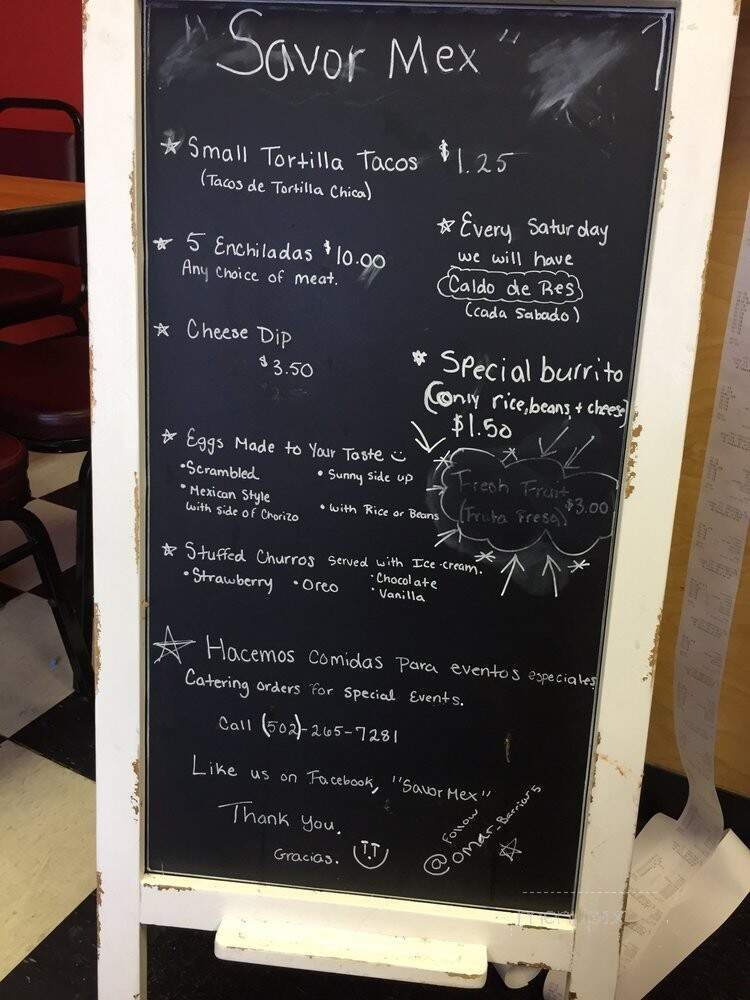 "Savor Mex"
☆ Small Tortilla Tacos $1.25
(Tacos de Tortilla Chica)
☆ 5 Enchiladas $10.00
Any choice of meat.
☆ Every Saturday
we will have
Caldo de Res
(cada Sabado)
☆ Cheese Dip
$3.50
☆ Special burrito
(only rice, beans, + cheese)
$1.50
☆ Eggs Made to Your Taste
•Scrambled
• Sunny side up
• Mexican Style
with side of Chorizo
• with Rice or Beans
Fresh Fruit
(Fruta Fresa) $3.00
☆ Stuffed Churros served with Ice-cream.
•Strawberry •Oreo
•Chocolate
•Vanilla
☆ Hacemos comidas para eventos especiales
Catering orders for special Events.
Call (502)-265-7281
Like us on Facebook, "Savor Mex"
Thank you.
Gracias.
Follow
@omar_Barrios